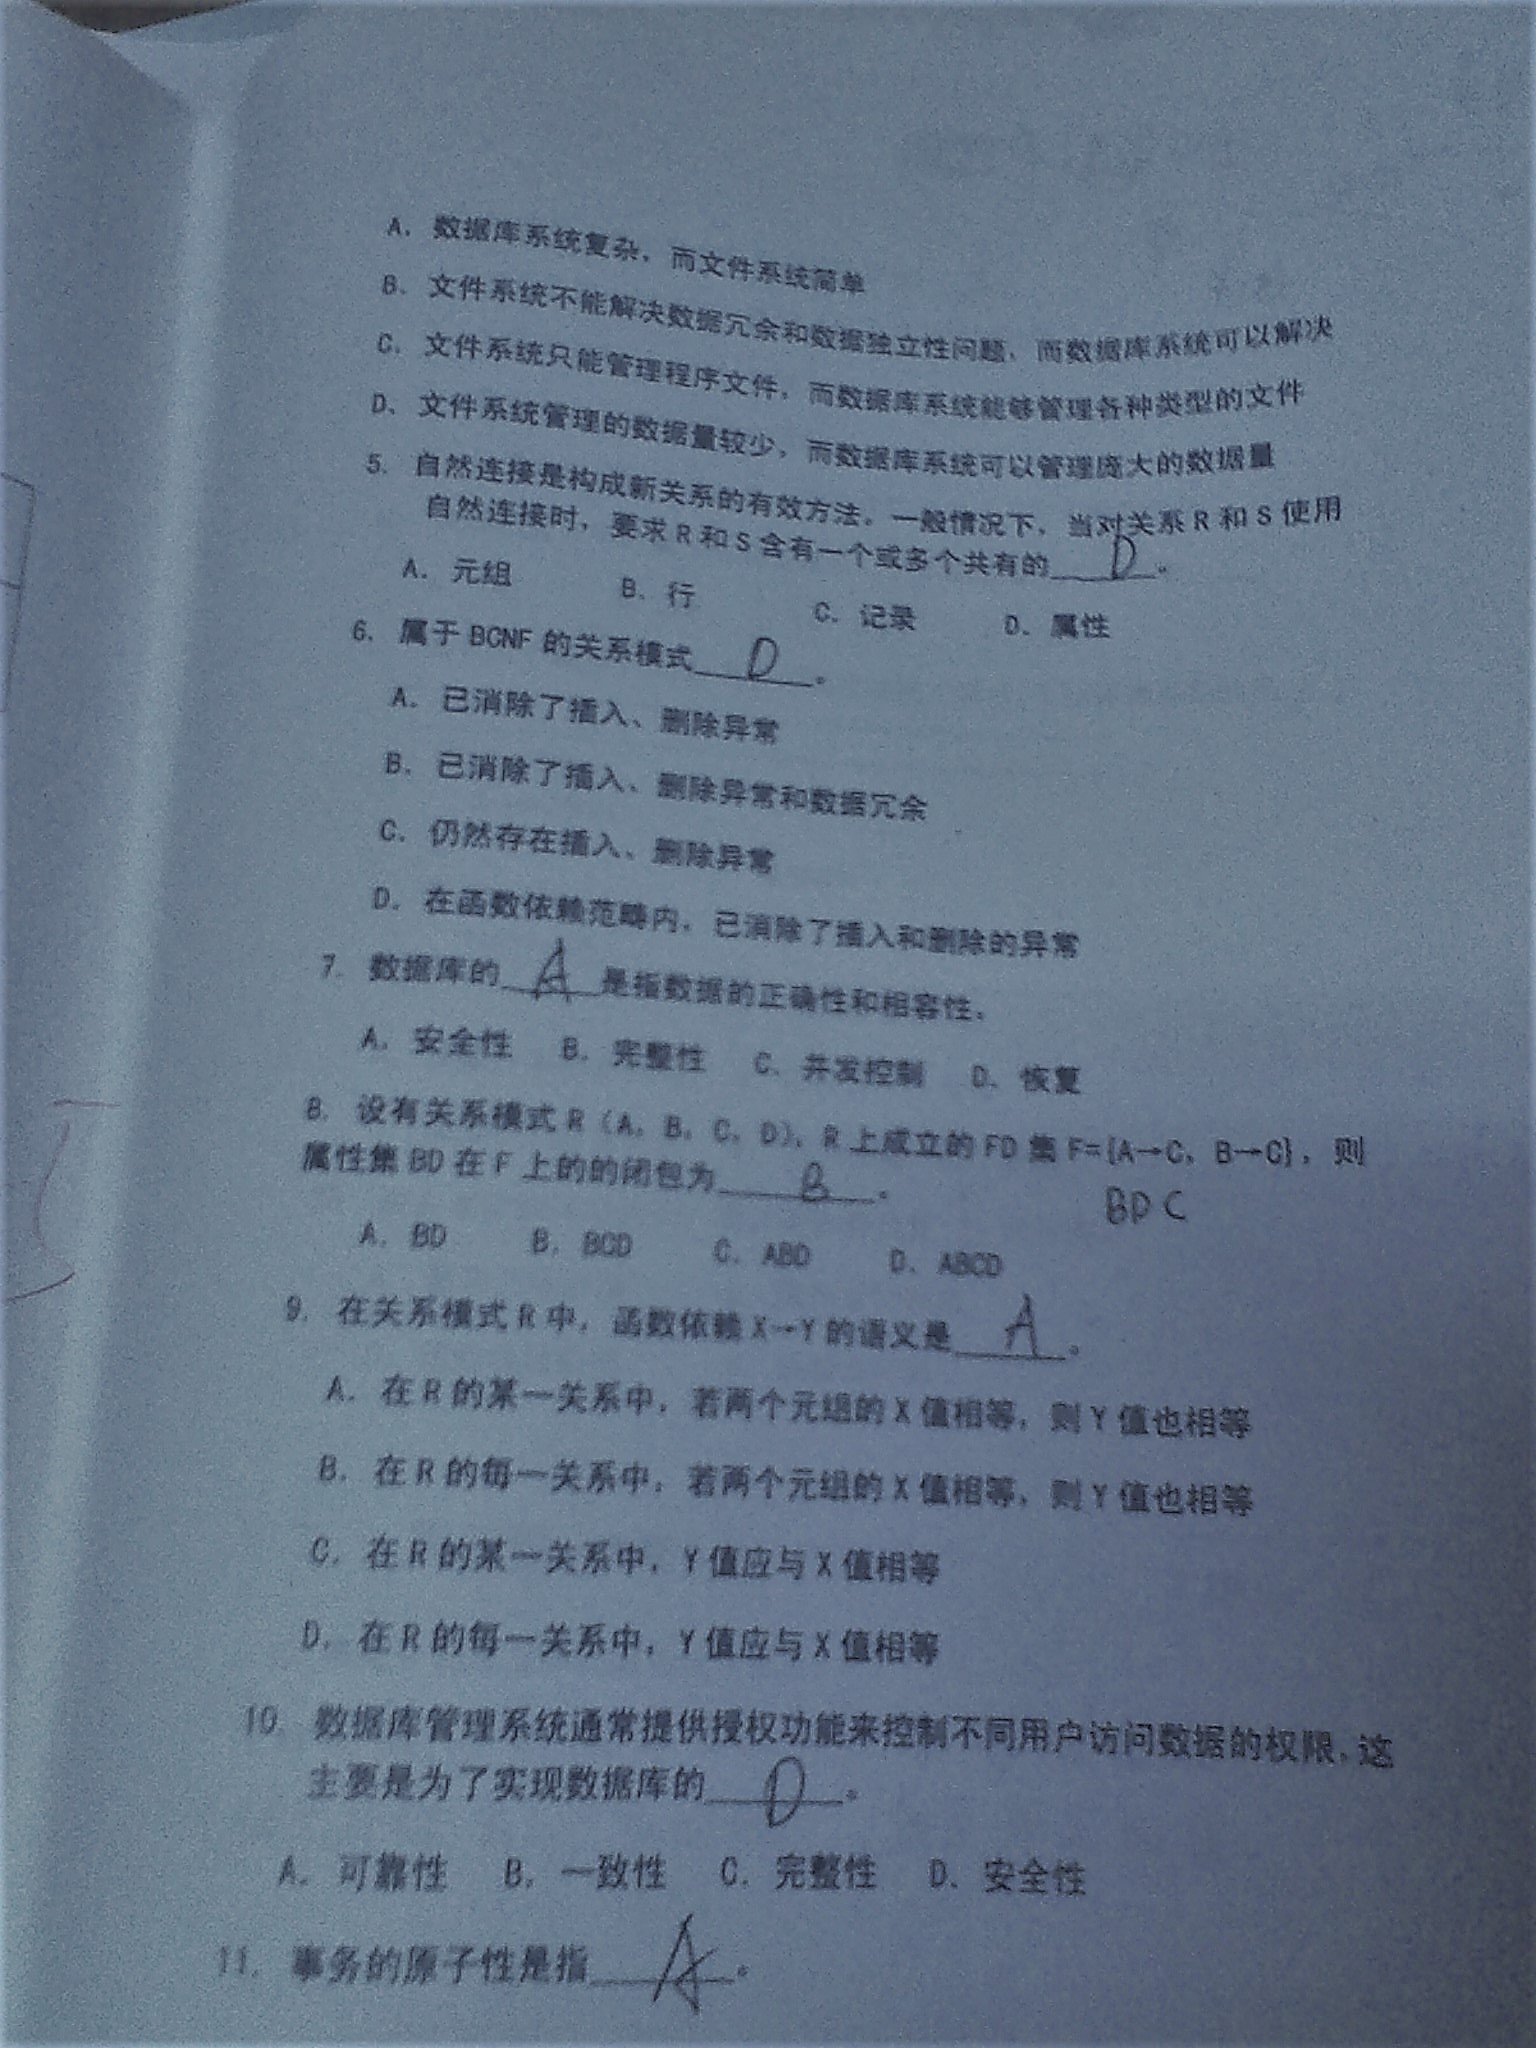 A. 数据库系统复杂，而文件系统简单
B. 文件系统不能解决数据冗余和数据独立性问题，而数据库系统可以解决
C. 文件系统只能管理程序文件，而数据库系统能够管理各种类型的文件
D. 文件系统管理的数据量较少，而数据库系统可以管理庞大的数据量
5. 自然连接是构成新关系的有效方法。一般情况下，当对关系 R 和 S 使用
自然连接时，要求 R 和 S 含有一个或多个共有的 D 。
A. 元组 B. 行 C. 记录 D. 属性
6. 属于 BCNF 的关系模式 D 。
A. 已消除了插入、删除异常
B. 已消除了插入、删除异常和数据冗余
C. 仍然存在插入、删除异常
D. 在函数依赖范畴内，已消除了插入和删除的异常
7. 数据库的 A 是指数据的正确性和相容性。
A. 安全性 B. 完整性 C. 并发控制 D. 恢复
8. 设有关系模式 R（A，B，C，D），R 上成立的 FD 集 F={A→C，B→C}，则
属性集 BD 在 F 上的的闭包为 B 。
BDC
A. BD B. BCD C. ABD D. ABCD
9. 在关系模式 R 中，函数依赖 X→Y 的语义是 A 。
A. 在 R 的某一关系中，若两个元组的 X 值相等，则 Y 值也相等
B. 在 R 的每一关系中，若两个元组的 X 值相等，则 Y 值也相等
C. 在 R 的某一关系中，Y 值应与 X 值相等
D. 在 R 的每一关系中，Y 值应与 X 值相等
10. 数据库管理系统通常提供授权功能来控制不同用户访问数据的权限，这
主要是为了实现数据库的 D 。
A. 可靠性 B. 一致性 C. 完整性 D. 安全性
11. 事务的原子性是指 A 。